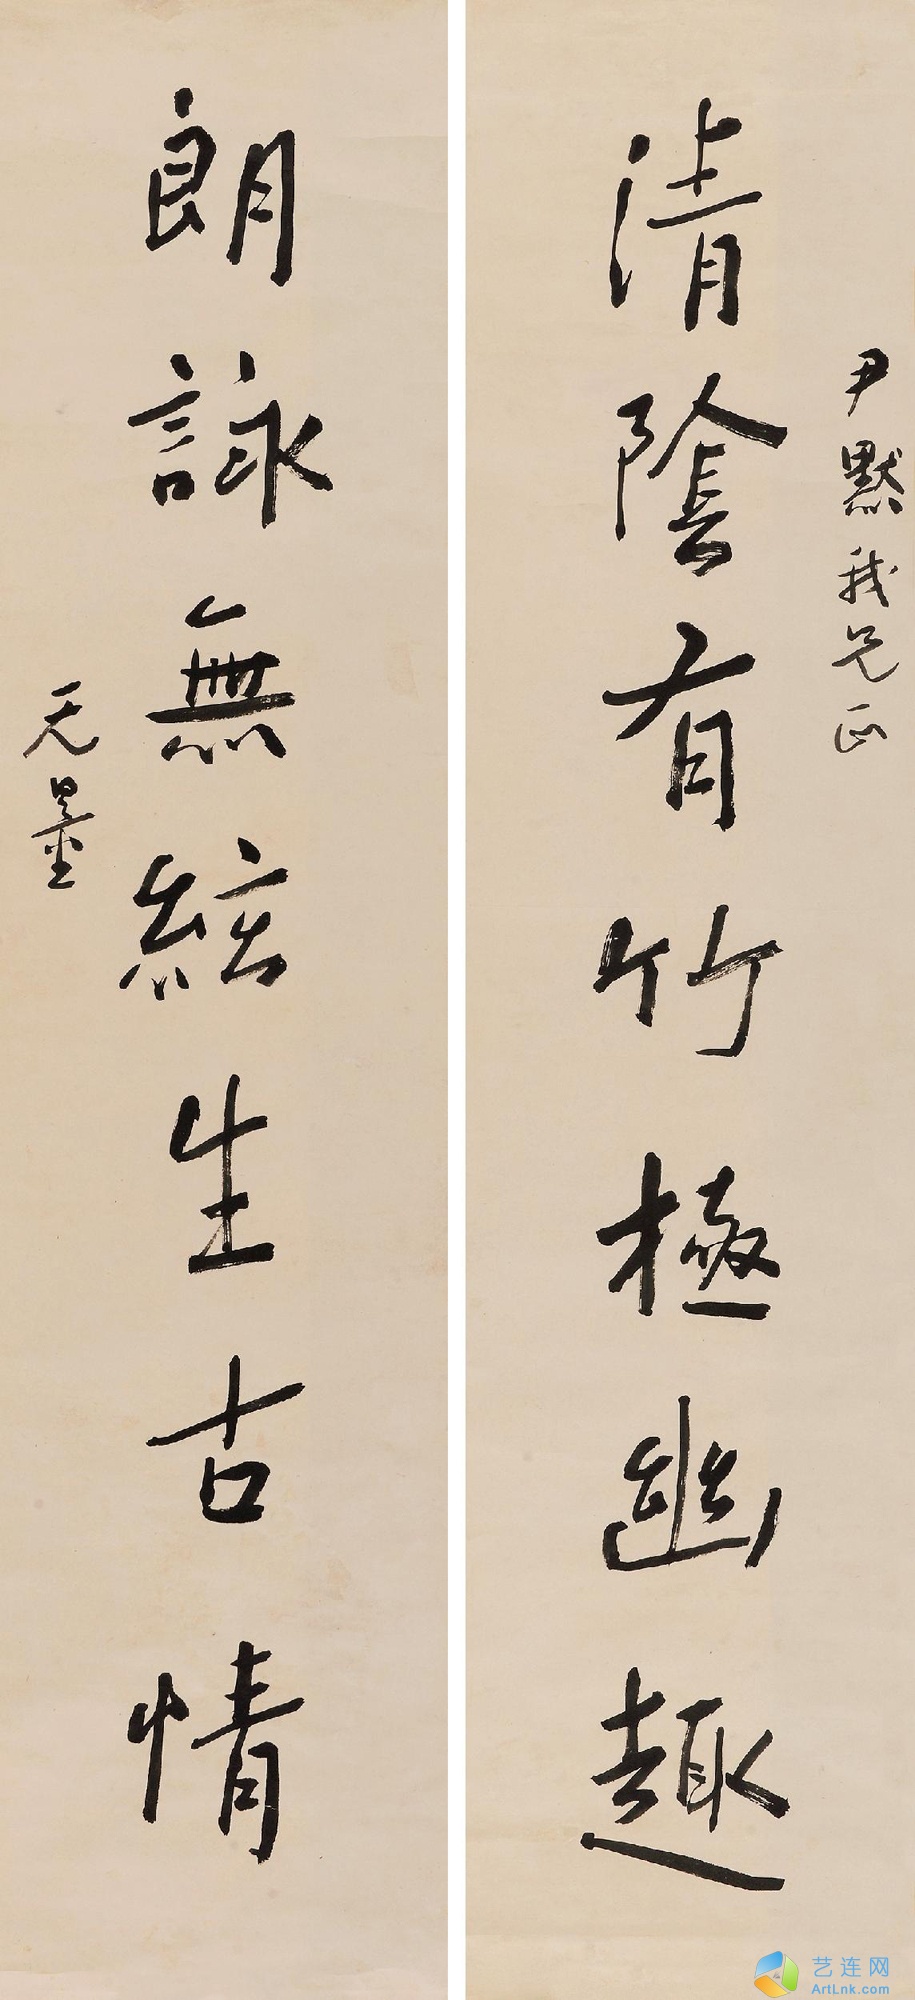 尹默我兄正
清陰有竹極幽趣
朗詠無絃生古情
无量
艺连网
ArtLnk.com